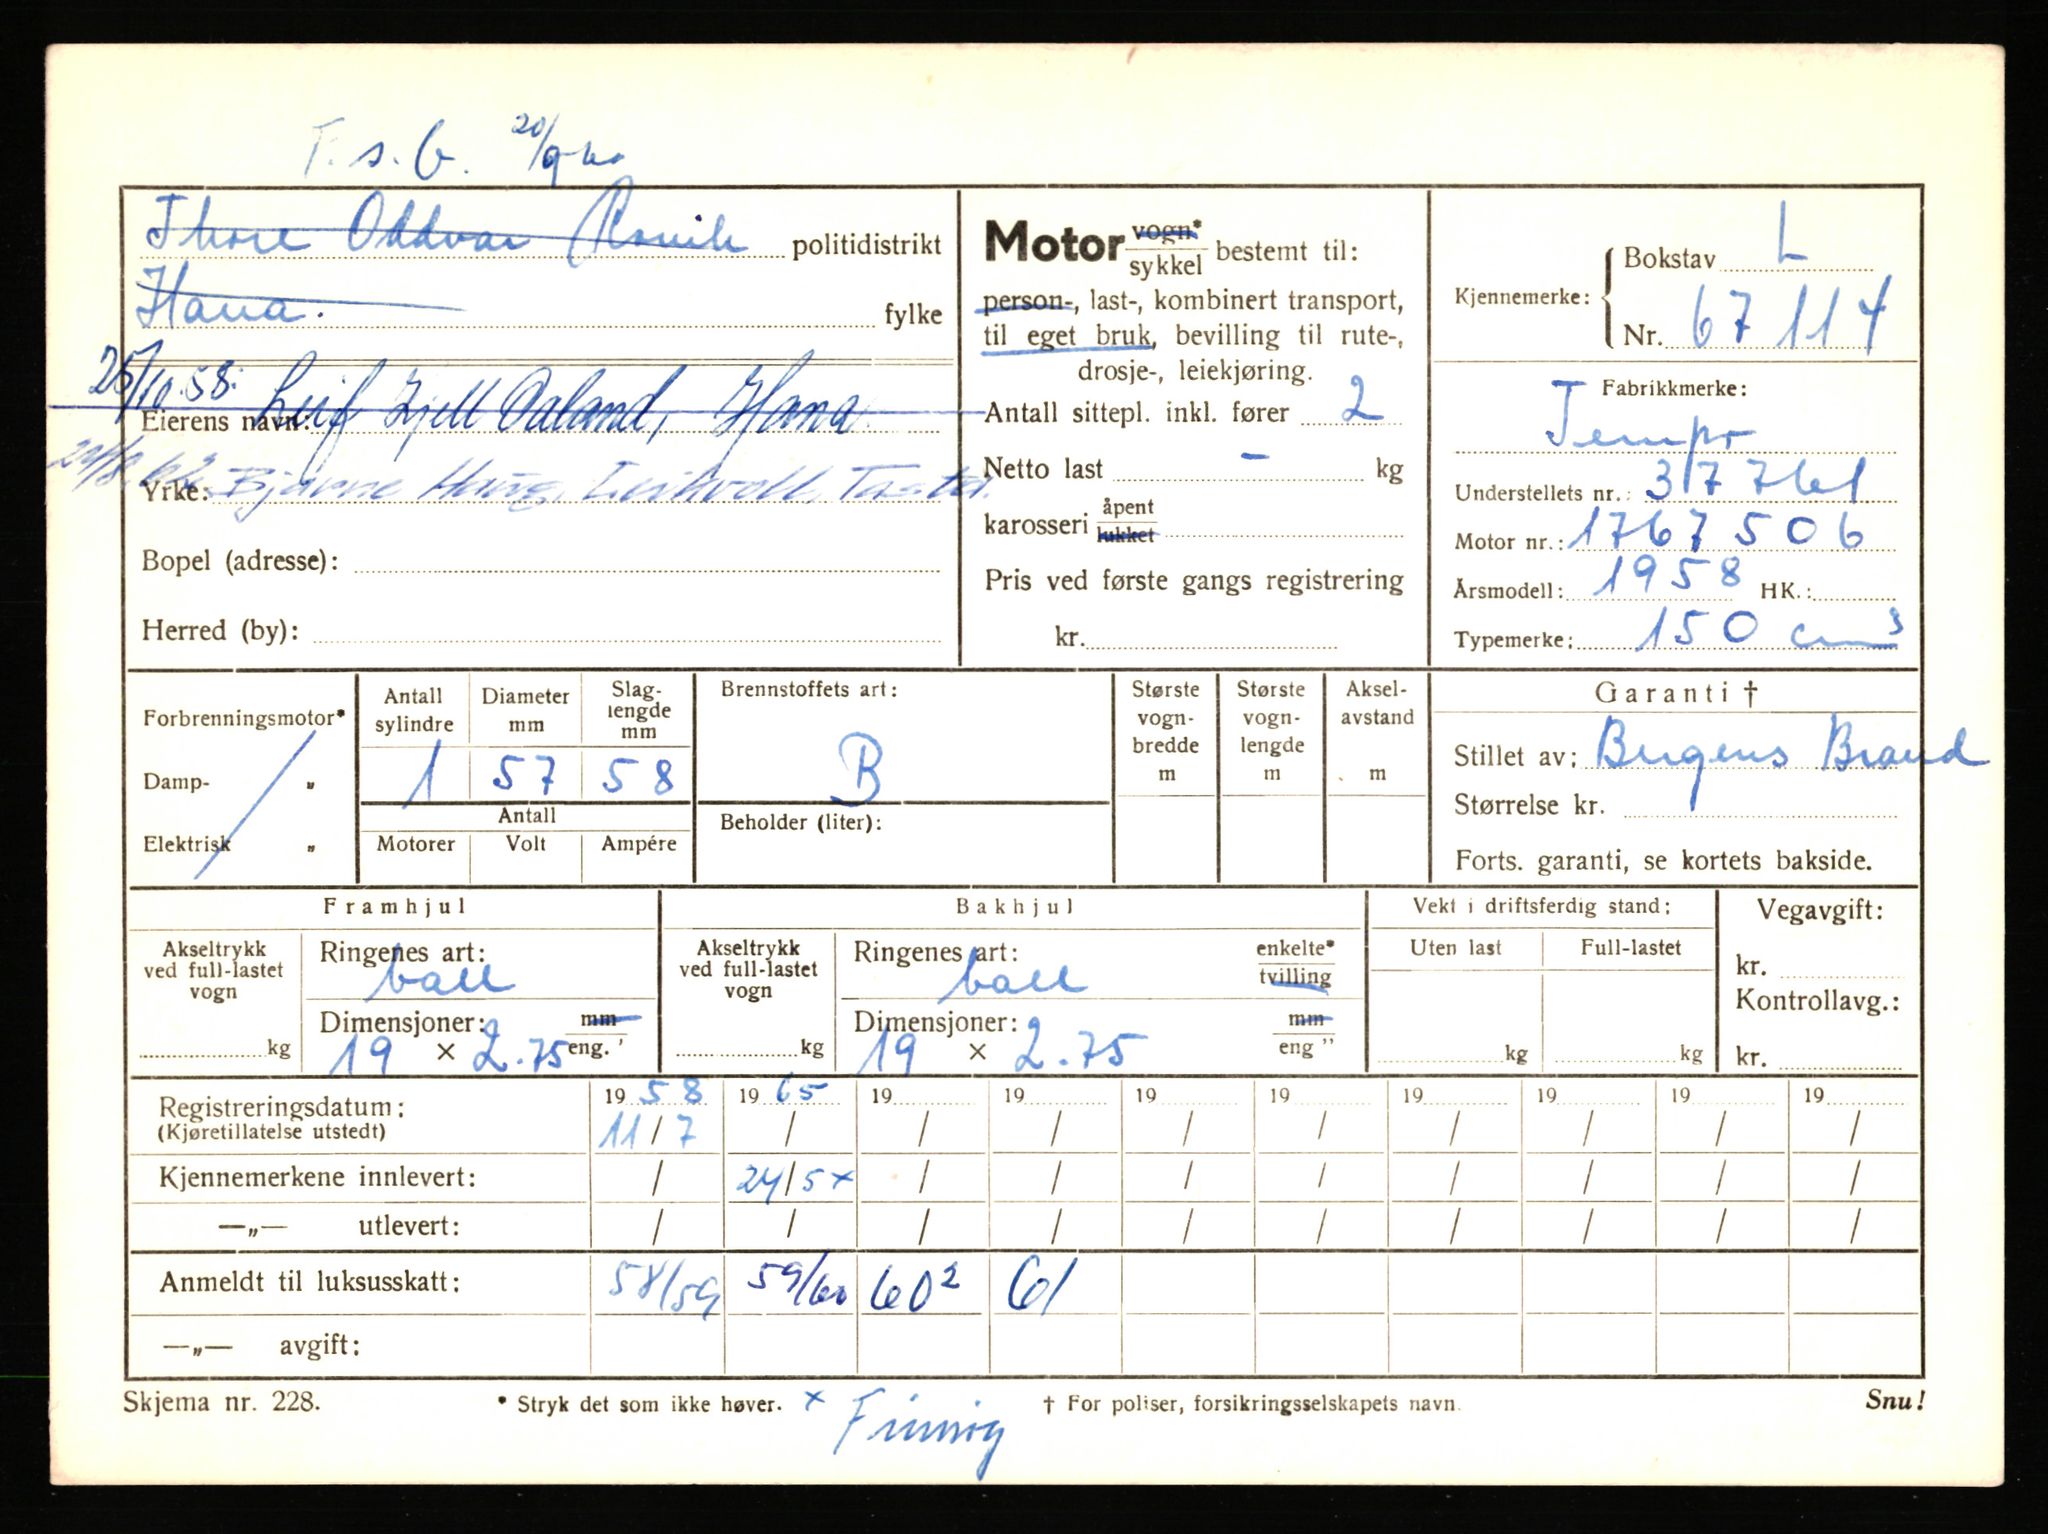 T. s. b. 20/9-60
Thore Oddvar politidistrikt
Hana. fylke
25/10.58. Leif Kjell Aaland, Hana.
Eierens navn:
Yrke: Bjarne Haug, Tasta.
Bopel (adresse):
Herred (by):
Motor vogn* / sykkel bestemt til:
person-, last-, kombinert transport,
til eget bruk, bevilling til rute-,
drosje-, leiekjøring.
Antall sittepl. inkl. fører 2
Netto last – kg
karosseri åpent / lukket
Pris ved første gangs registrering
kr.
Kjennemerke: { Bokstav L
Nr. 67114
Fabrikkmerke:
Tempo
Understellets nr.: 317761
Motor nr.: 1767506
Årsmodell: 1958 HK.:
Typemerke: 150 cm³
Forbrenningsmotor*
Damp- „
Elektrisk „
Antall sylindre Diameter mm Slag-lengde mm
1 57 58
Antall
Motorer Volt Ampére
Brennstoffets art:
B
Beholder (liter):
Største vogn-bredde m
Største vogn-lengde m
Aksel-avstand m
Garanti †
Stillet av: Bergens Brand
Størrelse kr.
Forts. garanti, se kortets bakside.
Framhjul
Akseltrykk ved full-lastet vogn
kg
Ringenes art:
ball
Dimensjoner: mm / eng. '
19 × 2.75
Bakhjul
Akseltrykk ved full-lastet vogn
kg
Ringenes art: enkelte* / tvilling
ball
Dimensjoner: mm / eng "
19 × 2.75
Vekt i driftsferdig stand:
Uten last Full-lastet
kg kg
Vegavgift:
kr.
Kontrollavg.:
kr.
Registreringsdatum: 1958 1965 19 19 19 19 19 19 19 19
(Kjøretillatelse utstedt) 11/7 / / / / / / / / /
Kjennemerkene innlevert: / 24/5 x / / / / / / / /
—„— utlevert: / / / / / / / / / /
Anmeldt til luksusskatt: 58/59 59/60 60² 61
—„— avgift:
Skjema nr. 228. * Stryk det som ikke høver. x † For poliser, forsikringsselskapets navn. Snu!